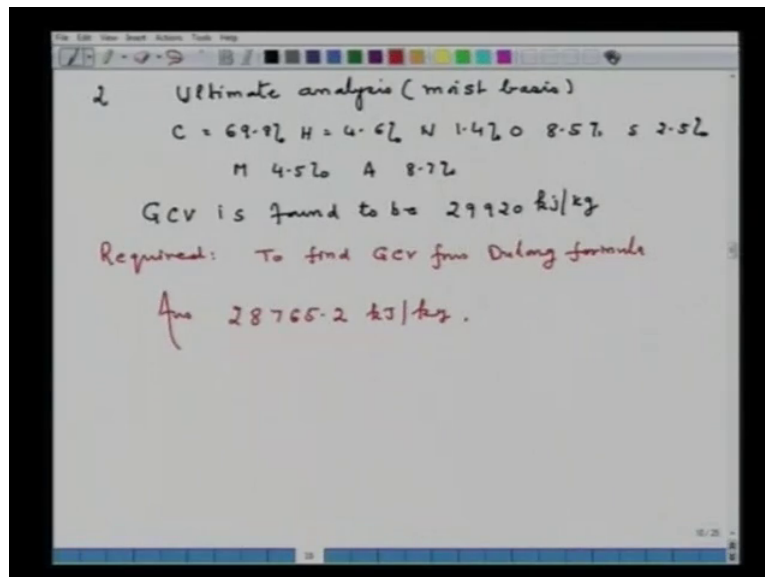 File Edit View Insert Actions Tools Help
2 Ultimate analysis (moist basis)
C = 69.8% H = 4.6% N 1.4% O 8.5% S 2.5%
M 4.5% A 8.7%
GCV is found to be 29920 kJ/kg
Required: To find GCV from Dulong formula
Ans 28765.2 kJ/kg.